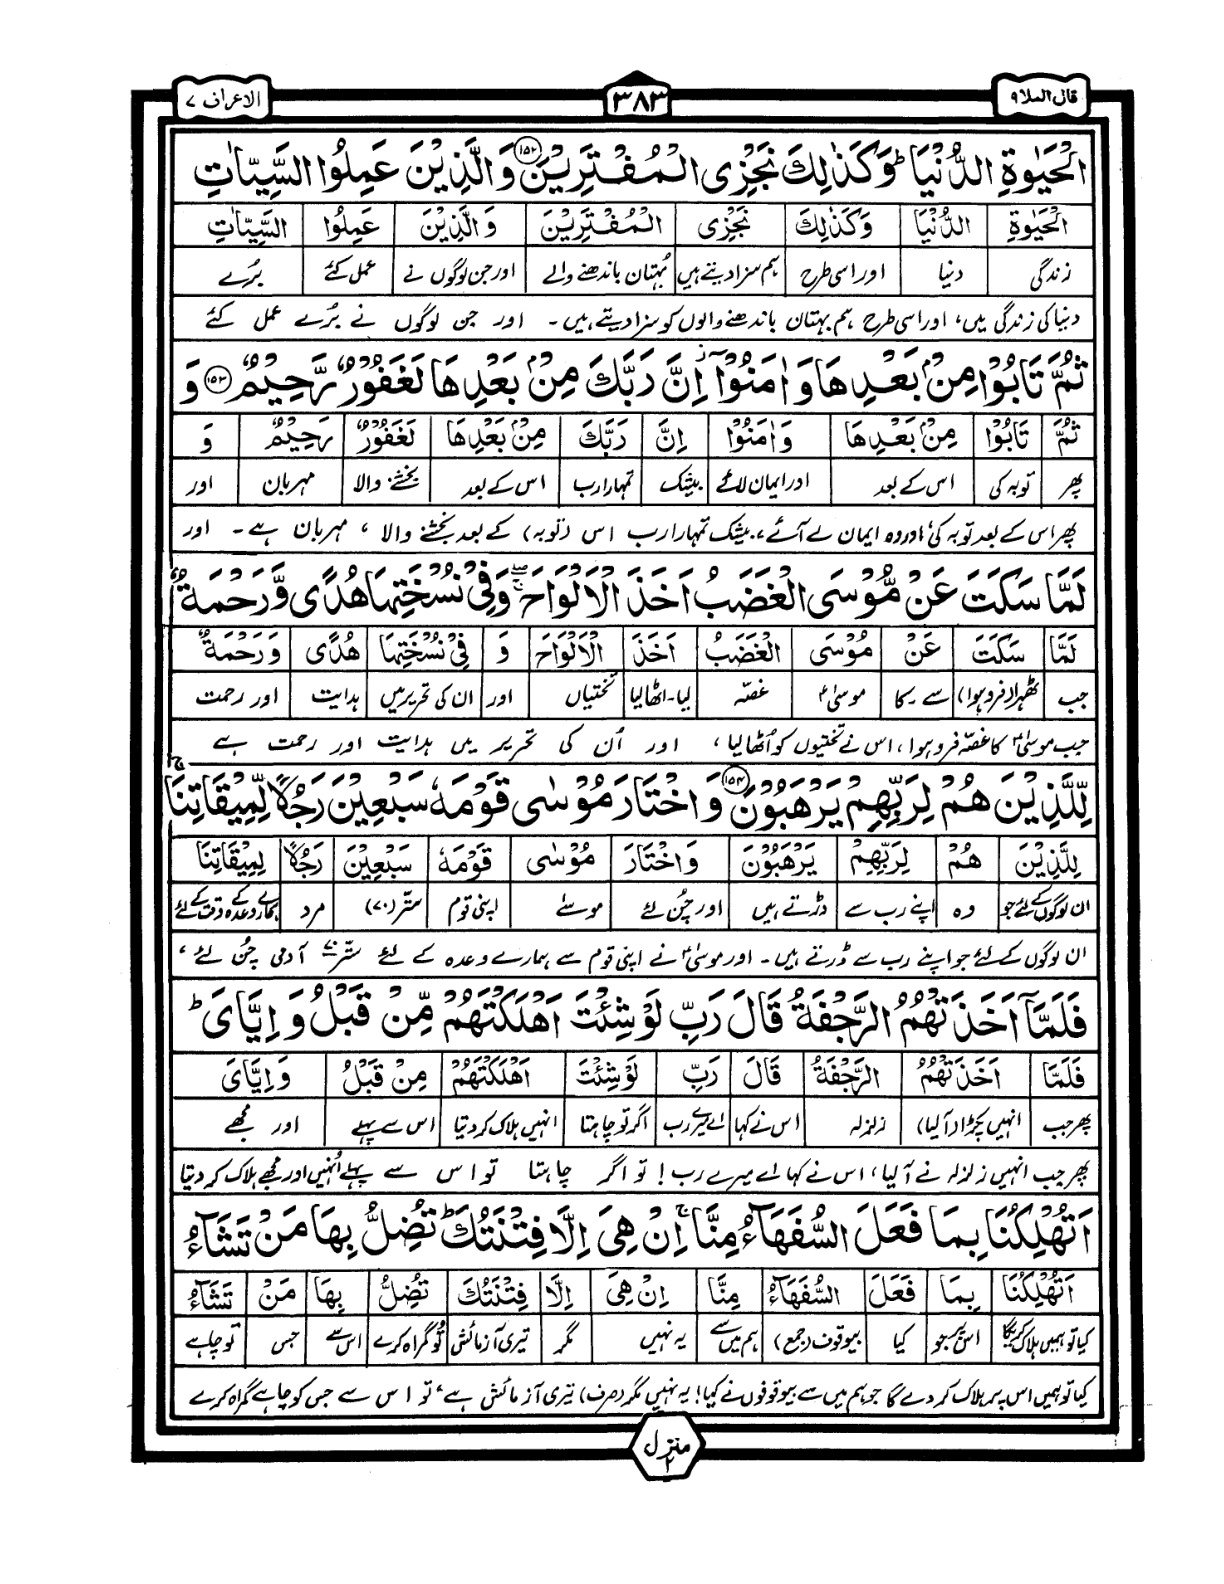 قال الملا ٩
٣٨٣
الاعراف ٧
الْحَيٰوةِ الدُّنْيَا ؕ وَكَذٰلِكَ نَجْزِى الْمُفْتَرِيْنَ ﴿١٥٢﴾ وَالَّذِيْنَ عَمِلُوا السَّيِّاٰتِ
الْحَيٰوةِ الدُّنْيَا وَكَذٰلِكَ نَجْزِى الْمُفْتَرِيْنَ وَالَّذِيْنَ عَمِلُوا السَّيِّاٰتِ
زندگی دنیا اور اسی طرح ہم سزا دیتے ہیں بُہتان باندھنے والے اور جن لوگوں نے عمل کئے بُرے
دنیا کی زندگی میں، اور اسی طرح ہم بہتان باندھنے والوں کو سزا دیتے ہیں۔ اور جن لوگوں نے بُرے عمل کئے
ثُمَّ تَابُوْا مِنْۢ بَعْدِهَا وَاٰمَنُوْۤا اِنَّ رَبَّكَ مِنْۢ بَعْدِهَا لَغَفُوْرٌ رَّحِيْمٌ ﴿١٥٣﴾ وَ
ثُمَّ تَابُوْا مِنْۢ بَعْدِهَا وَاٰمَنُوْا اِنَّ رَبَّكَ مِنْۢ بَعْدِهَا لَغَفُوْرٌ رَحِيْمٌ وَ
پھر توبہ کی اس کے بعد اور ایمان لائے بیشک تمہارا رب اس کے بعد بخشنے والا مہربان اور
پھر اس کے بعد توبہ کی اور وہ ایمان لے آئے، بیشک تمہارا رب اس (توبہ) کے بعد بخشنے والا، مہربان ہے۔ اور
لَمَّا سَكَتَ عَنْ مُّوْسَى الْغَضَبُ اَخَذَ الْاَلْوَاحَ ۖۚ وَفِىْ نُسْخَتِهَا هُدًى وَّرَحْمَةٌ
لَمَّا سَكَتَ عَنْ مُوْسَى الْغَضَبُ اَخَذَ الْاَلْوَاحَ وَ فِىْ نُسْخَتِهَا هُدًى وَرَحْمَةٌ
جب ٹھہرا (فرو ہوا) سے۔ کا موسیٰؑ غصّہ لیا۔ اٹھا لیا تختیاں اور ان کی تحریر میں ہدایت اور رحمت
جب موسیٰؑ کا غصّہ فرو ہوا، اس نے تختیوں کو اُٹھا لیا، اور اُن کی تحریر میں ہدایت اور رحمت ہے
لِّلَّذِيْنَ هُمْ لِرَبِّهِمْ يَرْهَبُوْنَ ﴿١٥٤﴾ وَاخْتَارَ مُوْسٰى قَوْمَهٗ سَبْعِيْنَ رَجُلًا لِّمِيْقَاتِنَا ۚ
لِلَّذِيْنَ هُمْ لِرَبِّهِمْ يَرْهَبُوْنَ وَاخْتَارَ مُوْسٰى قَوْمَهٗ سَبْعِيْنَ رَجُلًا لِمِيْقَاتِنَا
ان لوگوں کے لئے جو وہ اپنے رب سے ڈرتے ہیں اور چُن لئے موسےٰ اپنی قوم ستّر (۷۰) مرد ہمارے وعدہ وقت کے لئے
ان لوگوں کے لئے جو اپنے رب سے ڈرتے ہیں۔ اور موسیٰؑ نے اپنی قوم سے ہمارے وعدہ کے لئے ستّر ۷۰ آدمی چُن لئے،
فَلَمَّاۤ اَخَذَتْهُمُ الرَّجْفَةُ قَالَ رَبِّ لَوْ شِئْتَ اَهْلَكْتَهُمْ مِّنْ قَبْلُ وَاِيَّاىَ ؕ
فَلَمَّا اَخَذَتْهُمُ الرَّجْفَةُ قَالَ رَبِّ لَوْ شِئْتَ اَهْلَكْتَهُمْ مِنْ قَبْلُ وَاِيَّاىَ
پھر جب انہیں پکڑا (آ لیا) زلزلہ اس نے کہا اے میرے رب اگر تو چاہتا انہیں ہلاک کر دیتا اس سے پہلے اور مجھے
پھر جب انہیں زلزلہ نے آ لیا، اس نے کہا اے میرے رب! تو اگر چاہتا تو اس سے پہلے اُنہیں اور مجھے ہلاک کر دیتا
اَتُهْلِكُنَا بِمَا فَعَلَ السُّفَهَآءُ مِنَّا ۚ اِنْ هِىَ اِلَّا فِتْنَتُكَ ؕ تُضِلُّ بِهَا مَنْ تَشَآءُ
اَتُهْلِكُنَا بِمَا فَعَلَ السُّفَهَآءُ مِنَّا اِنْ هِىَ اِلَّا فِتْنَتُكَ تُضِلُّ بِهَا مَنْ تَشَآءُ
کیا تو ہمیں ہلاک کریگا اس پر جو کیا بیوقوف (جمع) ہم میں سے یہ نہیں مگر تیری آزمائش تو گمراہ کرے اس سے جس تو چاہے
کیا تو ہمیں اس پر ہلاک کر دے گا جو ہم میں سے بیوقوفوں نے کیا! یہ نہیں مگر (صرف) تیری آزمائش ہے، تو اس سے جس کو چاہے گمراہ کرے
منزل ٢